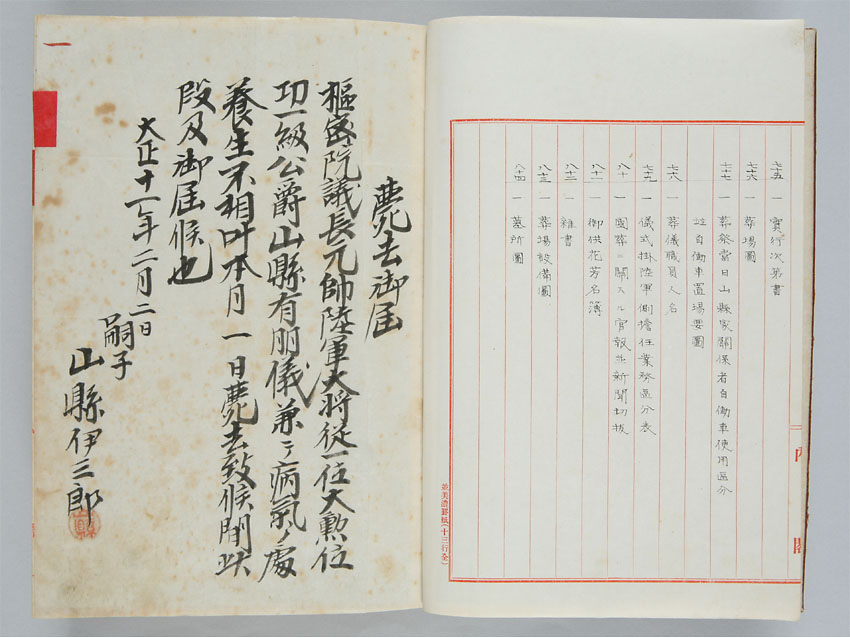 七十五 一 實行次第書
七十六 一 葬場圖
七十七 一 葬祭當日山縣家關係者自働車使用區分
竝自働車置場要圖
七十八 一 葬儀職員人名
七十九 一 儀式掛陸軍側擔任業務區分表
八十 一 國葬ニ關スル官報竝新聞切抜
八十一 一 御供花芳名簿
八十二 一 雜書
八十三 一 葬場設備圖
八十四 一 墓所圖
内閣
並美濃罫紙(十三行全)
一
薨去御届
樞密院議長元帥陸軍大将従一位大勲位
功一級公爵山縣有朋儀兼テ病氣ノ處
養生不相叶本月一日薨去致候間此
段及御届候也
大正十一年二月二日
嗣子
山縣伊三郎